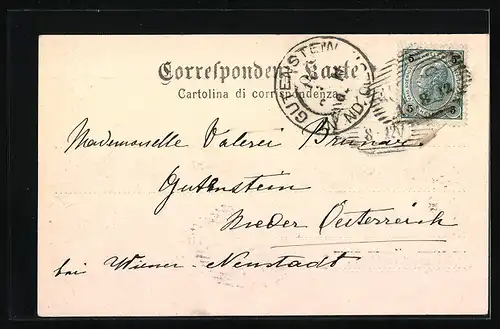 Correspondenz-Karte
Cartolina di corrispondenza
GUTENSTEIN
5 5
Mademoiselle Valerei Brunar
Gutenstein
Nieder Oesterreich
bei Wiener-Neustadt